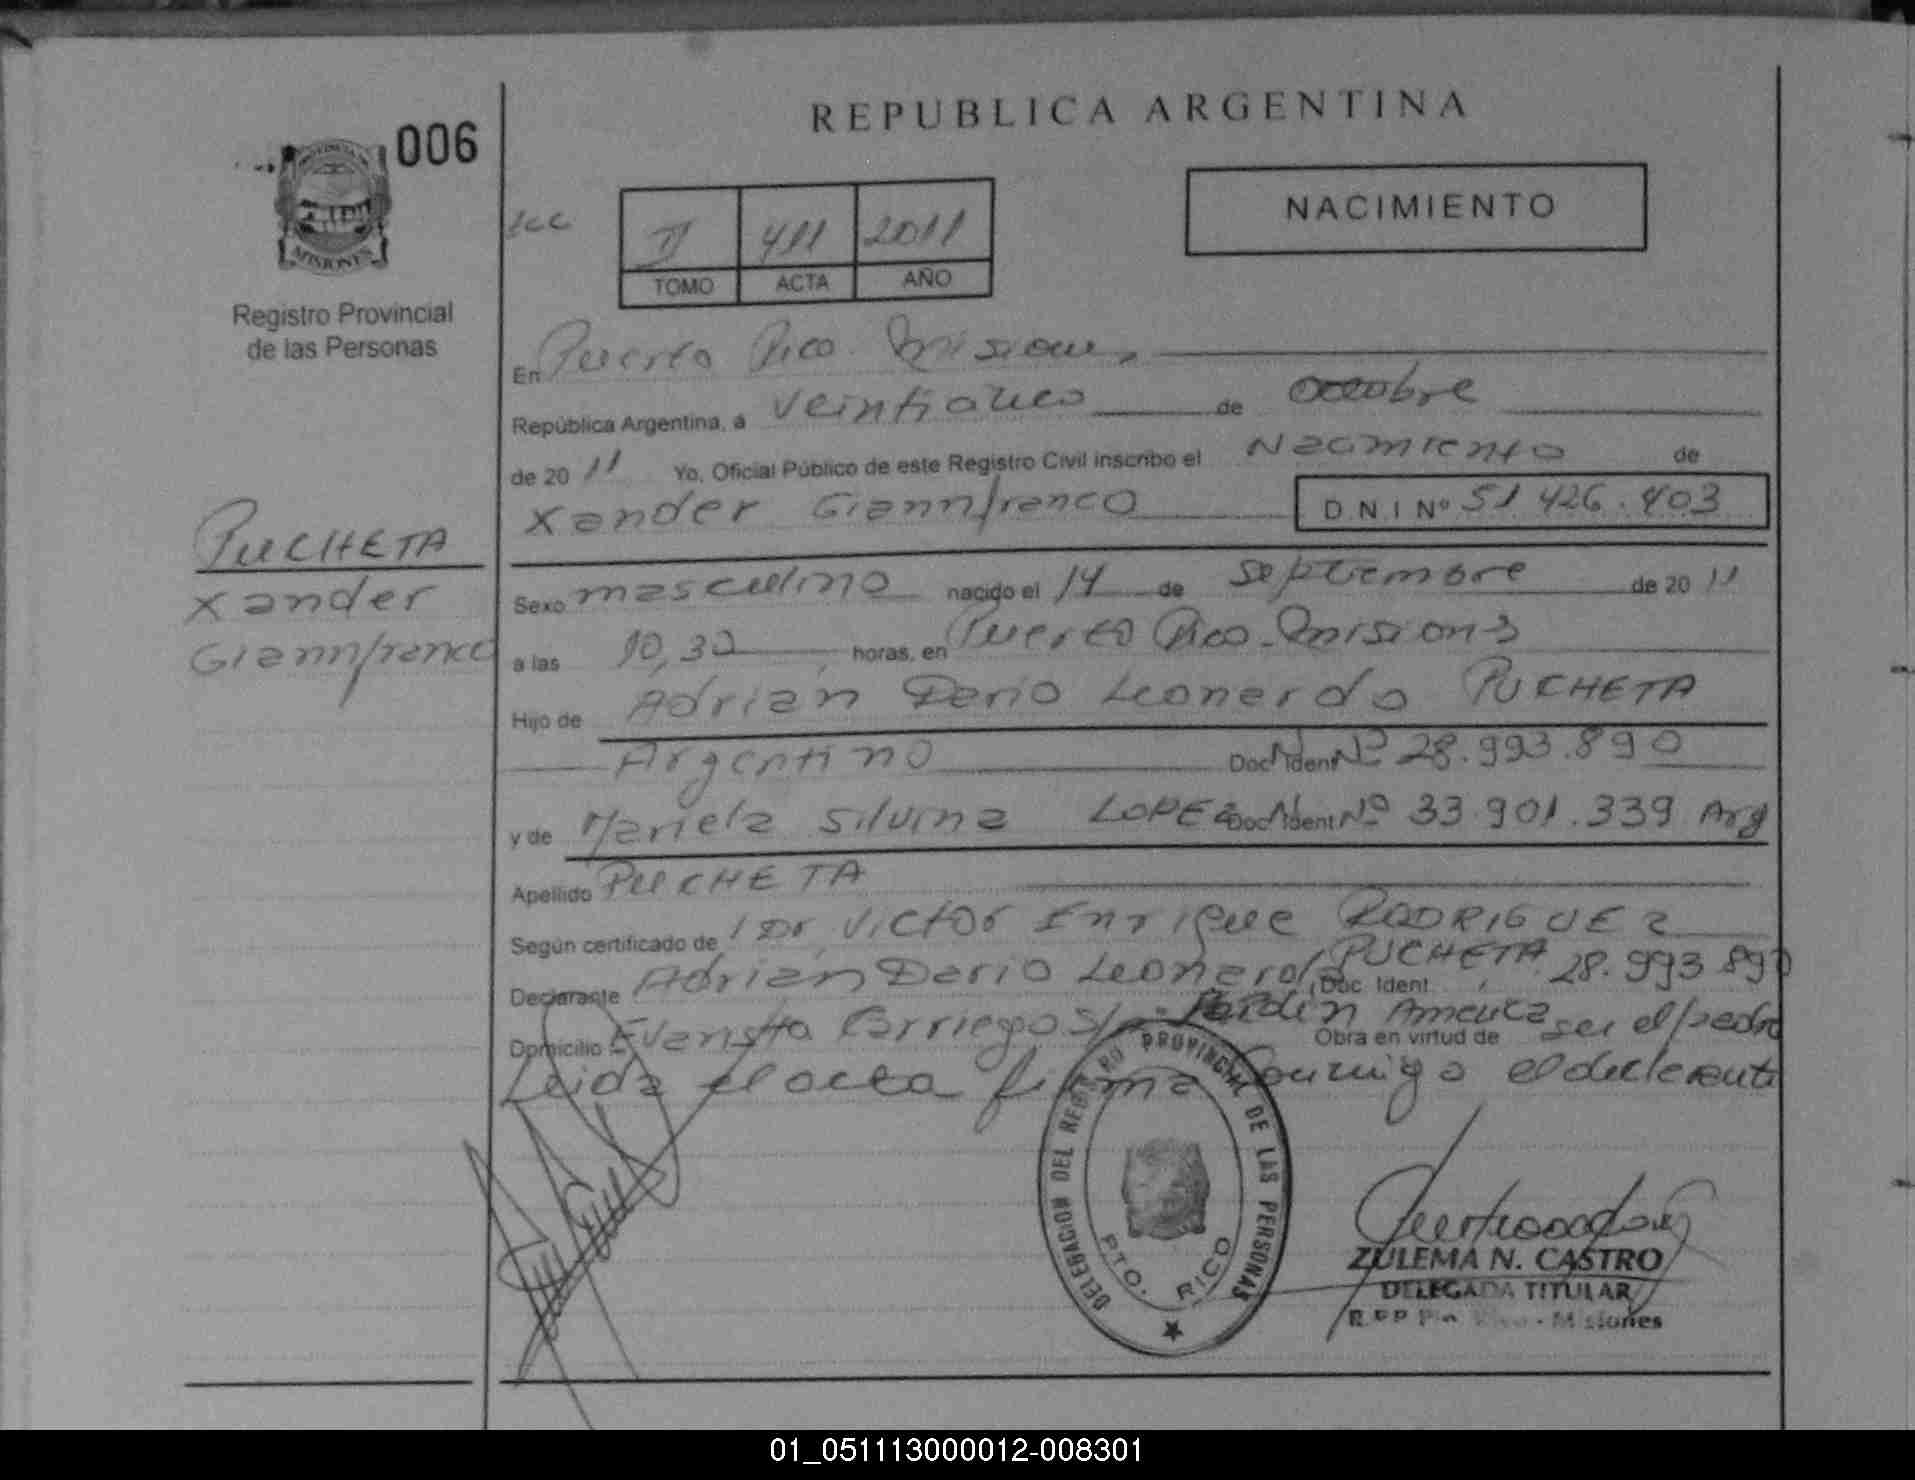 REPUBLICA ARGENTINA
006
PROVINCIA DE
MISIONES
Registro Provincial
de las Personas
NACIMIENTO
II 411 2011
TOMO ACTA AÑO
En Puerto Rico. Misiones
República Argentina, a veinticinco de octubre
de 2011 Yo, Oficial Público de este Registro Civil inscribo el Nacimiento de
Xander Giannfranco D.N.I Nº 51.426.403
PUCHETA
Xander
Giannfranco
Sexo masculino nacido el 14 de septiembre de 2011
a las 10,30 horas, en Puerto Rico - Misiones
Hijo de Adrián Dario Leonardo PUCHETA
Argentino Doc. Ident Nº 28.993.890
y de Mariela Silvina LOPEZ Doc. Ident Nº 33.901.339 Arg
Apellido PUCHETA
Según certificado de Dr Victor Enrique RODRIGUEZ
Declarante Adrián Dario Leonardo PUCHETA Doc. Ident. 28.993.890
Domicilio Evaristo Carriego S/n Jardin America Obra en virtud de ser el padre
Leida el acta firma conmigo el declarante
DELEGACION DEL REGISTRO PROVINCIAL DE LAS PERSONAS
PTO. RICO
ZULEMA N. CASTRO
DELEGADA TITULAR
R.P.P Pto. Rico - Misiones
01_051113000012-008301